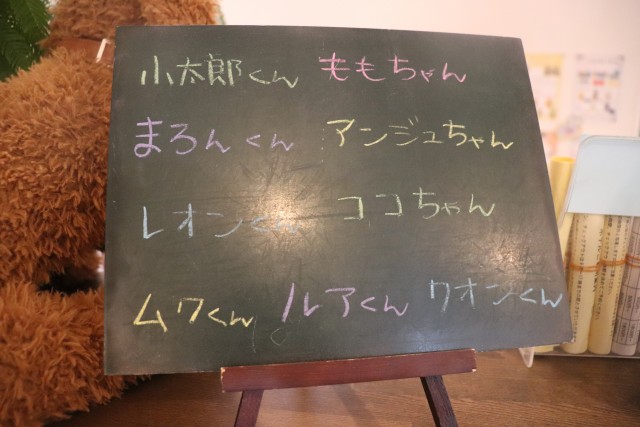 小太郎くん ももちゃん
まろんくん アンジュちゃん
レオンくん ココちゃん
ムワくん ルアくん クオンくん